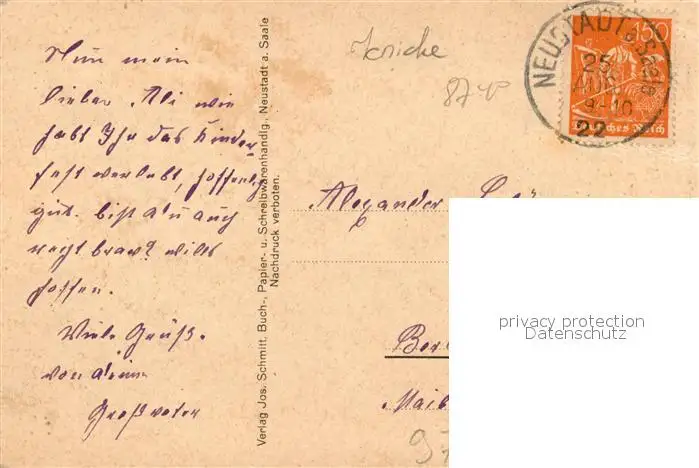 Nun mein
lieber Abi wie
habt Ihr das Kinder
fest verlebt, hoffentlich
gut. bist du auch
recht brav? wills
hoffen.
Viele Grüße
von deinem
Großvater
Verlag Jos. Schmitt, Buch-, Papier- u. Schreibwarenhandlg., Neustadt a. Saale
Nachdruck verboten.
87 40
NEUSTADT a. Saale
25
AUG
9-10
22
150
Deutsches Reich
Alexander
Ber
Maib
97
privacy protection
Datenschutz